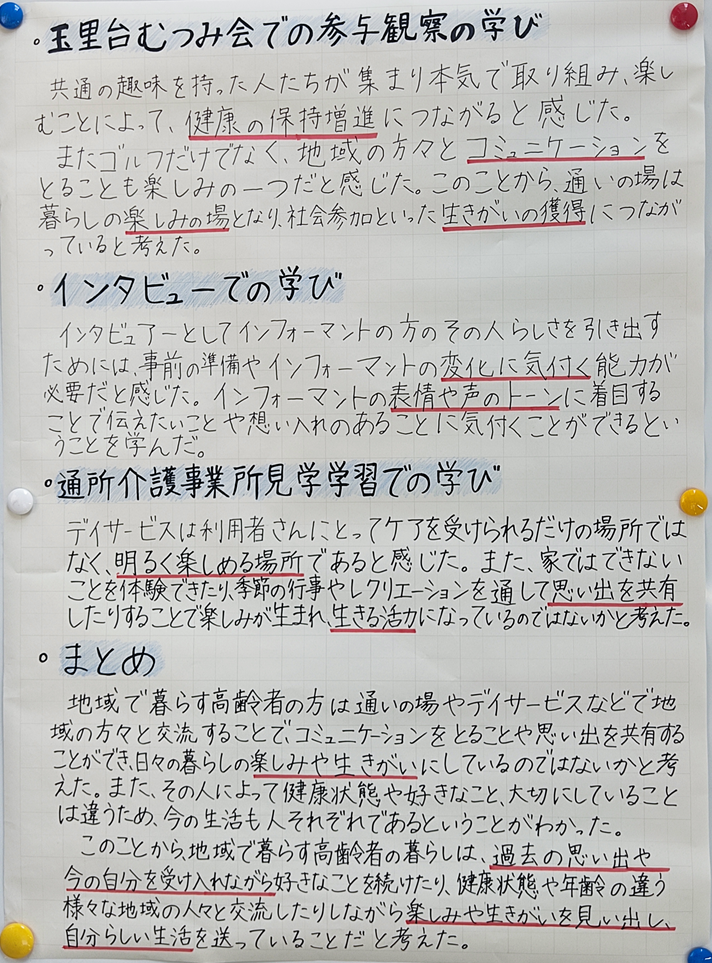 。玉里台むつみ会での参与観察の学び
共通の趣味を持った人たちが集まり本気で取り組み、楽し
むことによって、健康の保持増進につながると感じた。
またゴルフだけでなく、地域の方々とコミュニケーションを
とることも楽しみの一つだと感じた。このことから、通いの場は
暮らしの楽しみの場となり、社会参加といった生きがいの獲得につなが
っていると考えた。
・インタビューでの学び
インタビュアーとしてインフォーマントの方のその人らしさを引き出す
ためには、事前の準備やインフォーマントの変化に気付く能力が
必要だと感じた。インフォーマントの表情や声のトーンに着目する
ことで伝えたいことや想い入れのあることに気付くことができるとい
うことを学んだ。
。通所介護事業所見学学習での学び
デイサービスは利用者さんにとってケアを受けられるだけの場所では
なく、明るく楽しめる場所であると感じた。また、家ではできない
ことを体験できたり、季節の行事やレクリエーションを通して思い出を共有
したりすることで楽しみが生まれ、生きる活力になっているのではないかと考えた。
。まとめ
地域で暮らす高齢者の方は通いの場やデイサービスなどで地
域の方々と交流することで、コミュニケーションをとることや思い出を共有する
ことができ、日々の暮らしの楽しみや生きがいにしているのではないかと考
えた。また、その人によって健康状態や好きなこと、大切にしていること
は違うため、今の生活も人それぞれであるということがわかった。
このことから、地域で暮らす高齢者の暮らしは、過去の思い出や
今の自分を受け入れながら好きなことを続けたり、健康状態や年齢の違う
様々な地域の人々と交流したりしながら楽しみや生きがいを見い出し、
自分らしい生活を送っていることだと考えた。